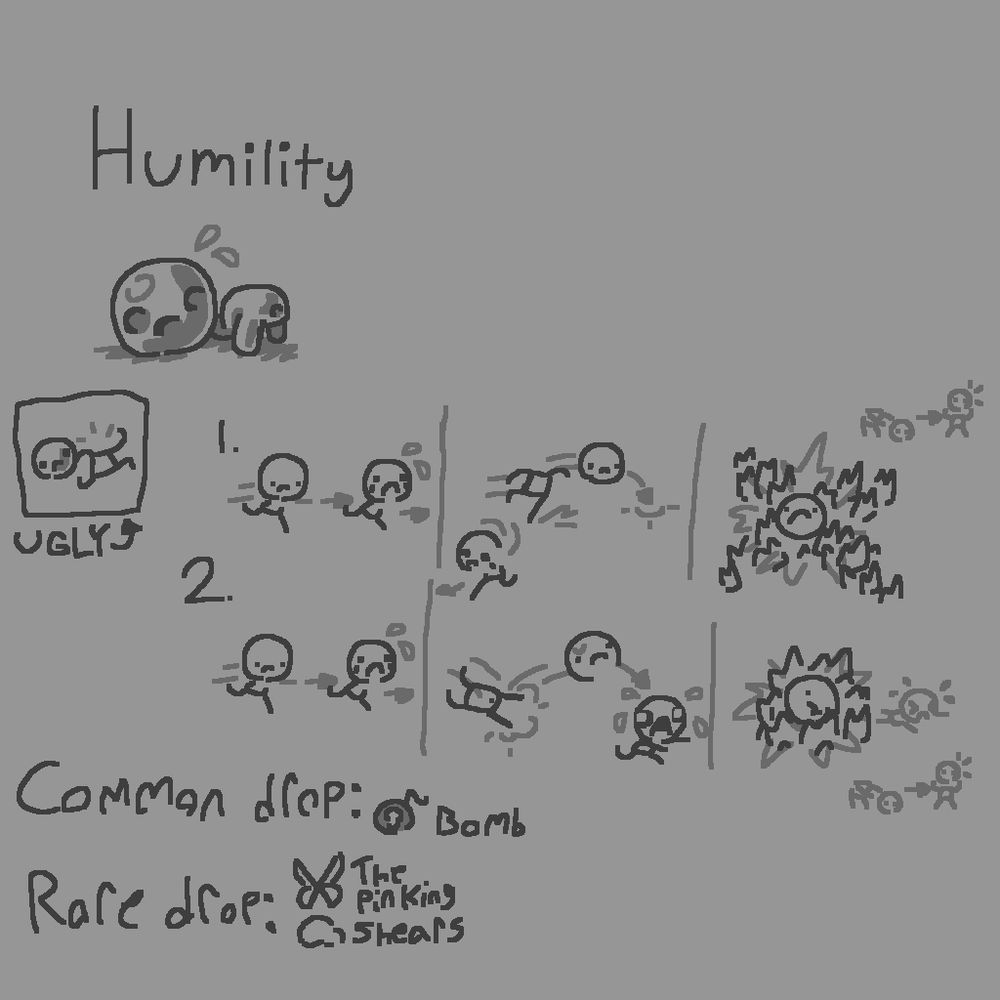 Humility
1.
UGLY
2.
Common drop: Bomb
Rare drop: The
pinking
shears